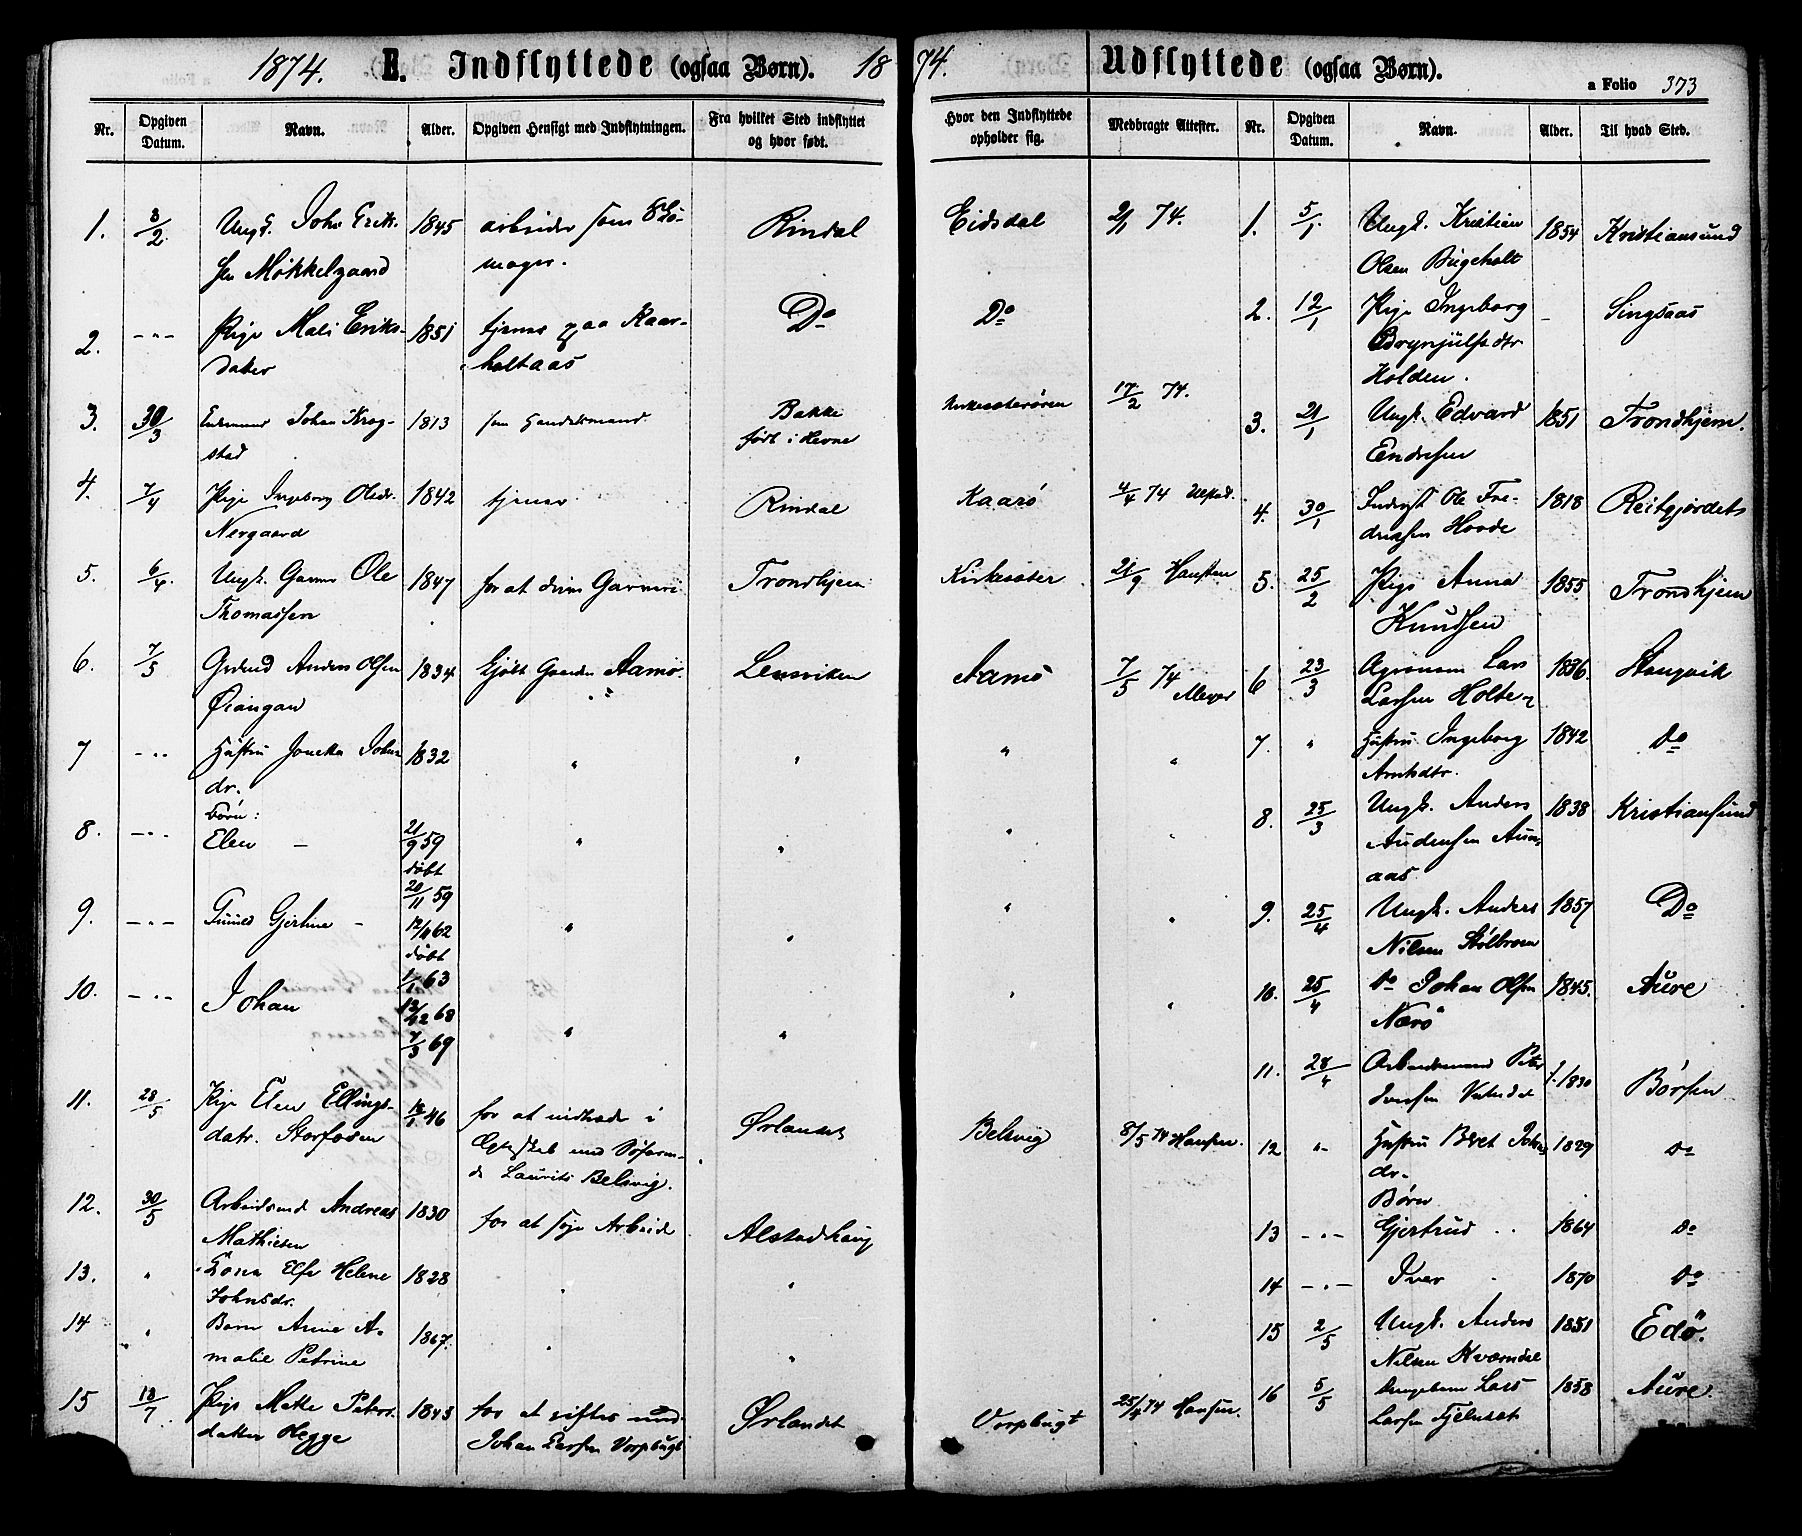 1874. E. Indflyttede (ogsaa Børn). 1874. Udflyttede (ogsaa Børn).
a Folio 373
Nr. Opgiven Datum. Navn. Alder. Opgiven Hensigt med Indflytningen. Fra hvilket Sted indflyttet og hvor født. Hvor den Indflyttede opholder sig. Medbragte Attester.
1. 8/2 Ungk. John Erik- 1845 arbeider som Sko- Rindal Eidsdal 2/1 74.
sen Møkkelgaard mager.
2. -"- Pige Mali Eriks- 1851 tjener paa Kaar- Do Do
datter holtaas
3. 30/3 Enkemand Johan Krog- 1813 som Handelsmand Bakke Kirkesæterøren 17/2 74.
stad født i Hevne
4. 7/4 Pige Ingeborg Olsdr. 1842 tjener Rindal Kaarø 4/4 74
Nergaard
5. 6/4. Ungk. Garver Ole 1847 for at drive Garveri Trondhjem Kirkesæter 21/9 Hansten
Thomassen
6. 7/5 Grdmd Anders Olsen 1834 Kjøbt Gaarden Aamø Lensviken Aamø 7/5 74 Meyer
Øiangan "
7 -"- Hustru Jonetta Johns 1832 " " " "
dr.
Børn:
8. -"- Elen - 21/9 59 " " " "
døbt
20/11 59
9. -"- Gjertine - 12/11 62 " " " "
døbt
1/1 63
10. -"- Johan 12/12 68 " " " "
7/3 69
11. 28/5 Pige Elen Ellings- 46 for at indtræde i Ørlandet Belsvig 8/5 74 Hansen.
datr. Storfosen Egteskab med
Laurits Belsvig.
12. 30/5 Arbeidsmd Andreas 1830 for at søge Arbeide Alstadhaug
Mathisen
13. " Kona Helene 1828 " "
Johnsdr.
14 " Barn Anne A- 1867. " "
malie Petrine
15 18/7 Pige Mette Peters- 1843 for at giftes med Ørlandet Vorpbugt 25/4 74 Hansen.
datter Hegge Johan Larsen Vorpbugt
Nr. Opgiven Datum. Navn. Alder. Til hvad Sted.
1. 5/1. Ungk. Kristian 1854 Kristiansund
Olsen Bugeholt
2. 12/1 Pige Ingeborg - Singsaas
Brynjulfsdtr
Holden.
3. 21/1 Ungk. Edvard 1851 Trondhjem.
Endresen
4. 30/1 Inderst Ole Fre- 1818 Reitgjerdet
driksen Hovde
5. 25/2 Pige Anna 1855 Trondhjem
Knudsen
6 23/3 Agronom Lars 1836. Stangvik
Larsen Holten
7. " Hustru Ingeborg 1842 Do
Arntsdtr.
8. 25/3 Ungk. Anders 1838 Kristiansund
Audensen Aun-
aas
9. 25/4 Ungk. Anders 1857 Do
Nilsen
10. 25/4 Do Johan Olsen 1845. Aure
Nærø
11. 28/4 Arbeidsmand Peter f. 1830 Børsen
Iversen
12 " Hustru Beret Johns 1829 Do
dr.
Børn
13 -"- Gjertrud " 1864 Do
14 -"- Iver " 1870 Do
15 2/5 Ungk. Anders 1851 Edø.
Nilsen Kværndal
16 5/5 Lars 1858 Aure.
Larsen Fjelnset